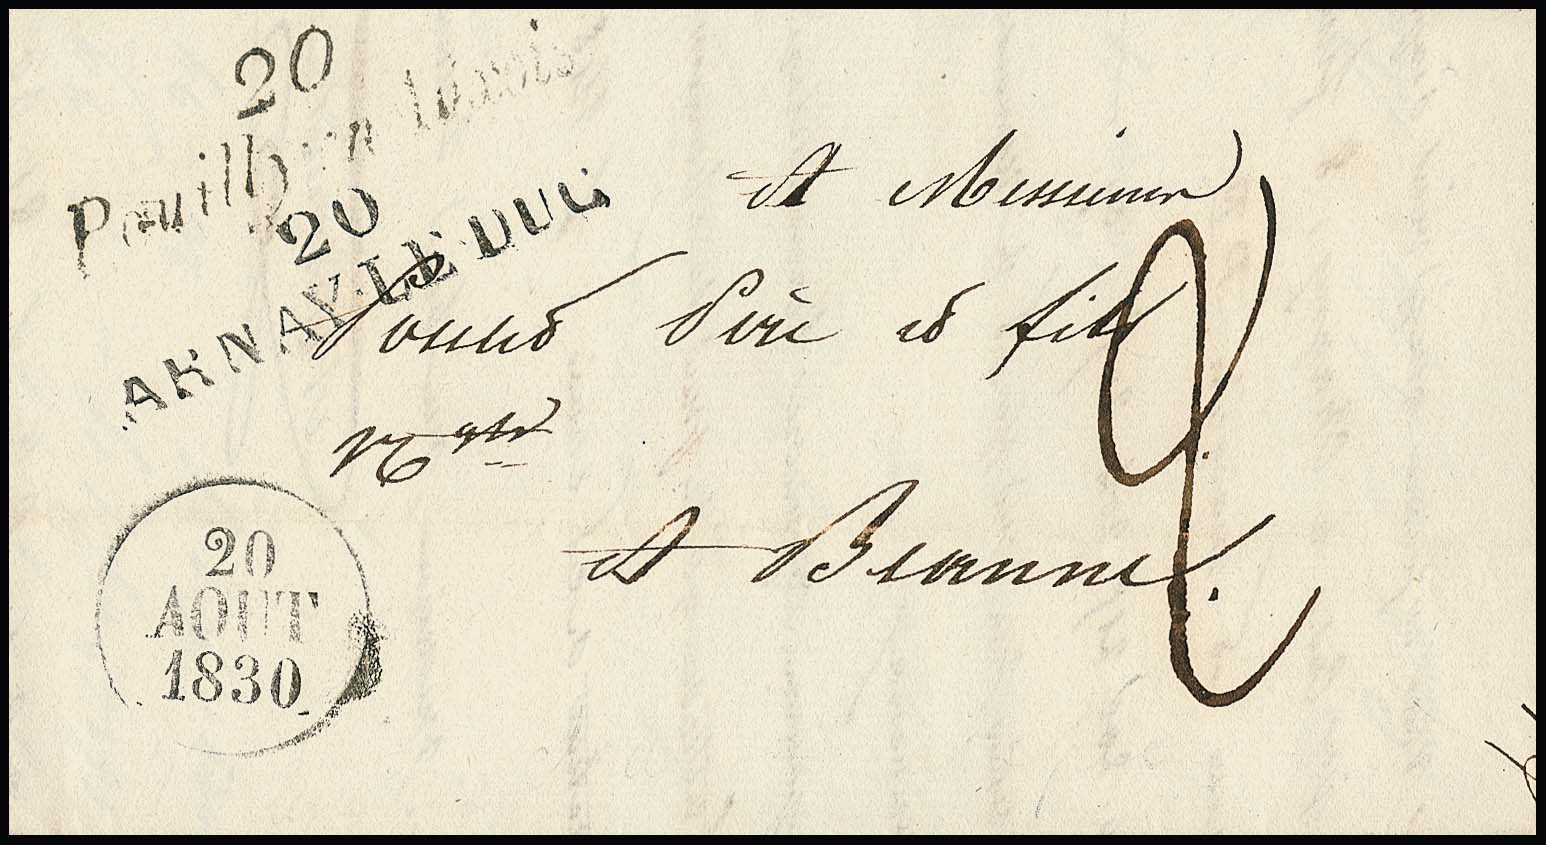 20
Pouilly-en-Auxois
20
ARNAY-LE-DUC
A Messieurs
Père et fils
Nég.nts
A Beaune.
2
20
AOUT
1830